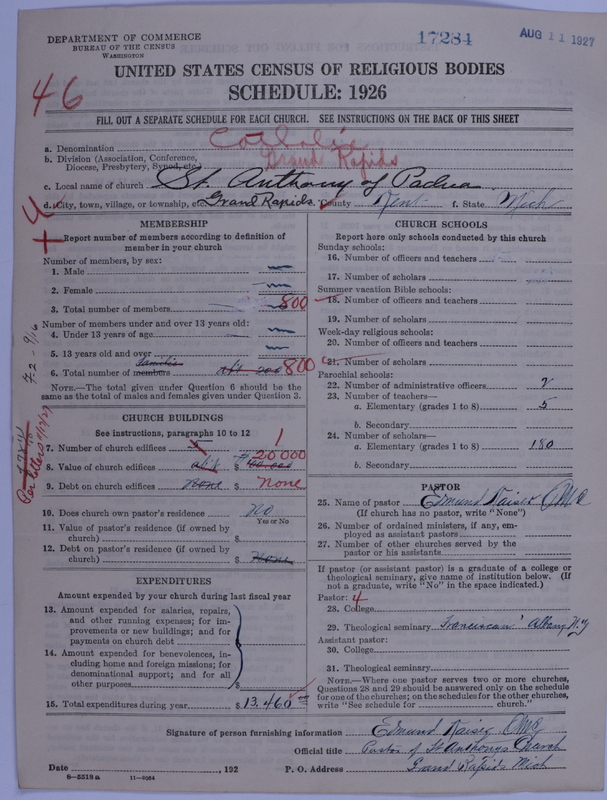 DEPARTMENT OF COMMERCE
BUREAU OF THE CENSUS
WASHINGTON
17284
AUG 11 1927
UNITED STATES CENSUS OF RELIGIOUS BODIES
SCHEDULE: 1926
46
FILL OUT A SEPARATE SCHEDULE FOR EACH CHURCH. SEE INSTRUCTIONS ON THE BACK OF THIS SHEET
a. Denomination Catholic
b. Division (Association, Conference, Diocese, Presbytery, Synod, etc.) Grand Rapids
c. Local name of church St. Anthony of Padua
d. City, town, village, or township, etc. Grand Rapids. County Kent f. State Mich
MEMBERSHIP
Report number of members according to definition of
member in your church
Number of members, by sex:
1. Male
2. Female
3. Total number of members 800
Number of members under and over 13 years old:
4. Under 13 years of age
5. 13 years old and over
Families
6. Total number of members 800
NOTE.—The total given under Question 6 should be
same as the total of males and females given under Question 3.
CHURCH BUILDINGS
See instructions, paragraphs 10 to 12
7. Number of church edifices 1
8. Value of church edifices $ 20 000
9. Debt on church edifices None $ None
10. Does church own pastor's residence No
Yes or No
11. Value of pastor's residence (if owned by
church) $
12. Debt on pastor's residence (if owned by
church) $ None
EXPENDITURES
Amount expended by your church during last fiscal year
13. Amount expended for salaries, repairs,
and other running expenses; for im-
provements or new buildings; and for
payments on church debt $
14. Amount expended for benevolences, in-
cluding home and foreign missions; for
denominational support; and for all
other purposes $
15. Total expenditures during year $ 13,460
CHURCH SCHOOLS
Report here only schools conducted by this church
Sunday schools:
16. Number of officers and teachers
17. Number of scholars
Summer vacation Bible schools:
18. Number of officers and teachers
19. Number of scholars
Week-day religious schools:
20. Number of officers and teachers
21. Number of scholars
Parochial schools:
22. Number of administrative officers
23. Number of teachers—
a. Elementary (grades 1 to 8) 5
b. Secondary
24. Number of scholars—
a. Elementary (grades 1 to 8) 180
b. Secondary
PASTOR
25. Name of pastor Edmund
(If church has no pastor, write "None")
26. Number of ordained ministers, if any, em-
ployed as assistant pastors
27. Number of other churches served by the
pastor or his assistants
If pastor (or assistant pastor) is a graduate of a college or
theological seminary, give name of institution below. (If
not a graduate, write "No" in the space indicated.)
Pastor: 4
28. College
29. Theological seminary Franciscan Albany N.Y
Assistant pastor:
30. College
31. Theological seminary
NOTE.—Where one pastor serves two or more churches,
Questions 28 and 29 should be answered only on the schedule
for one of the churches; on the schedules for the other churches,
write "See schedule for church."
Signature of person furnishing information Edmund
Official title Pastor of St Anthonys Church
Date , 192 P. O. Address Grand Rapids Mich
8—5519a 11—9364